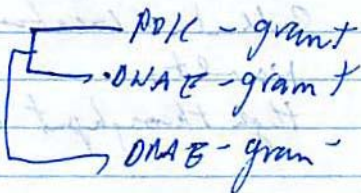 PolC - gram +
DNAE - gram +
DNAE - gram -